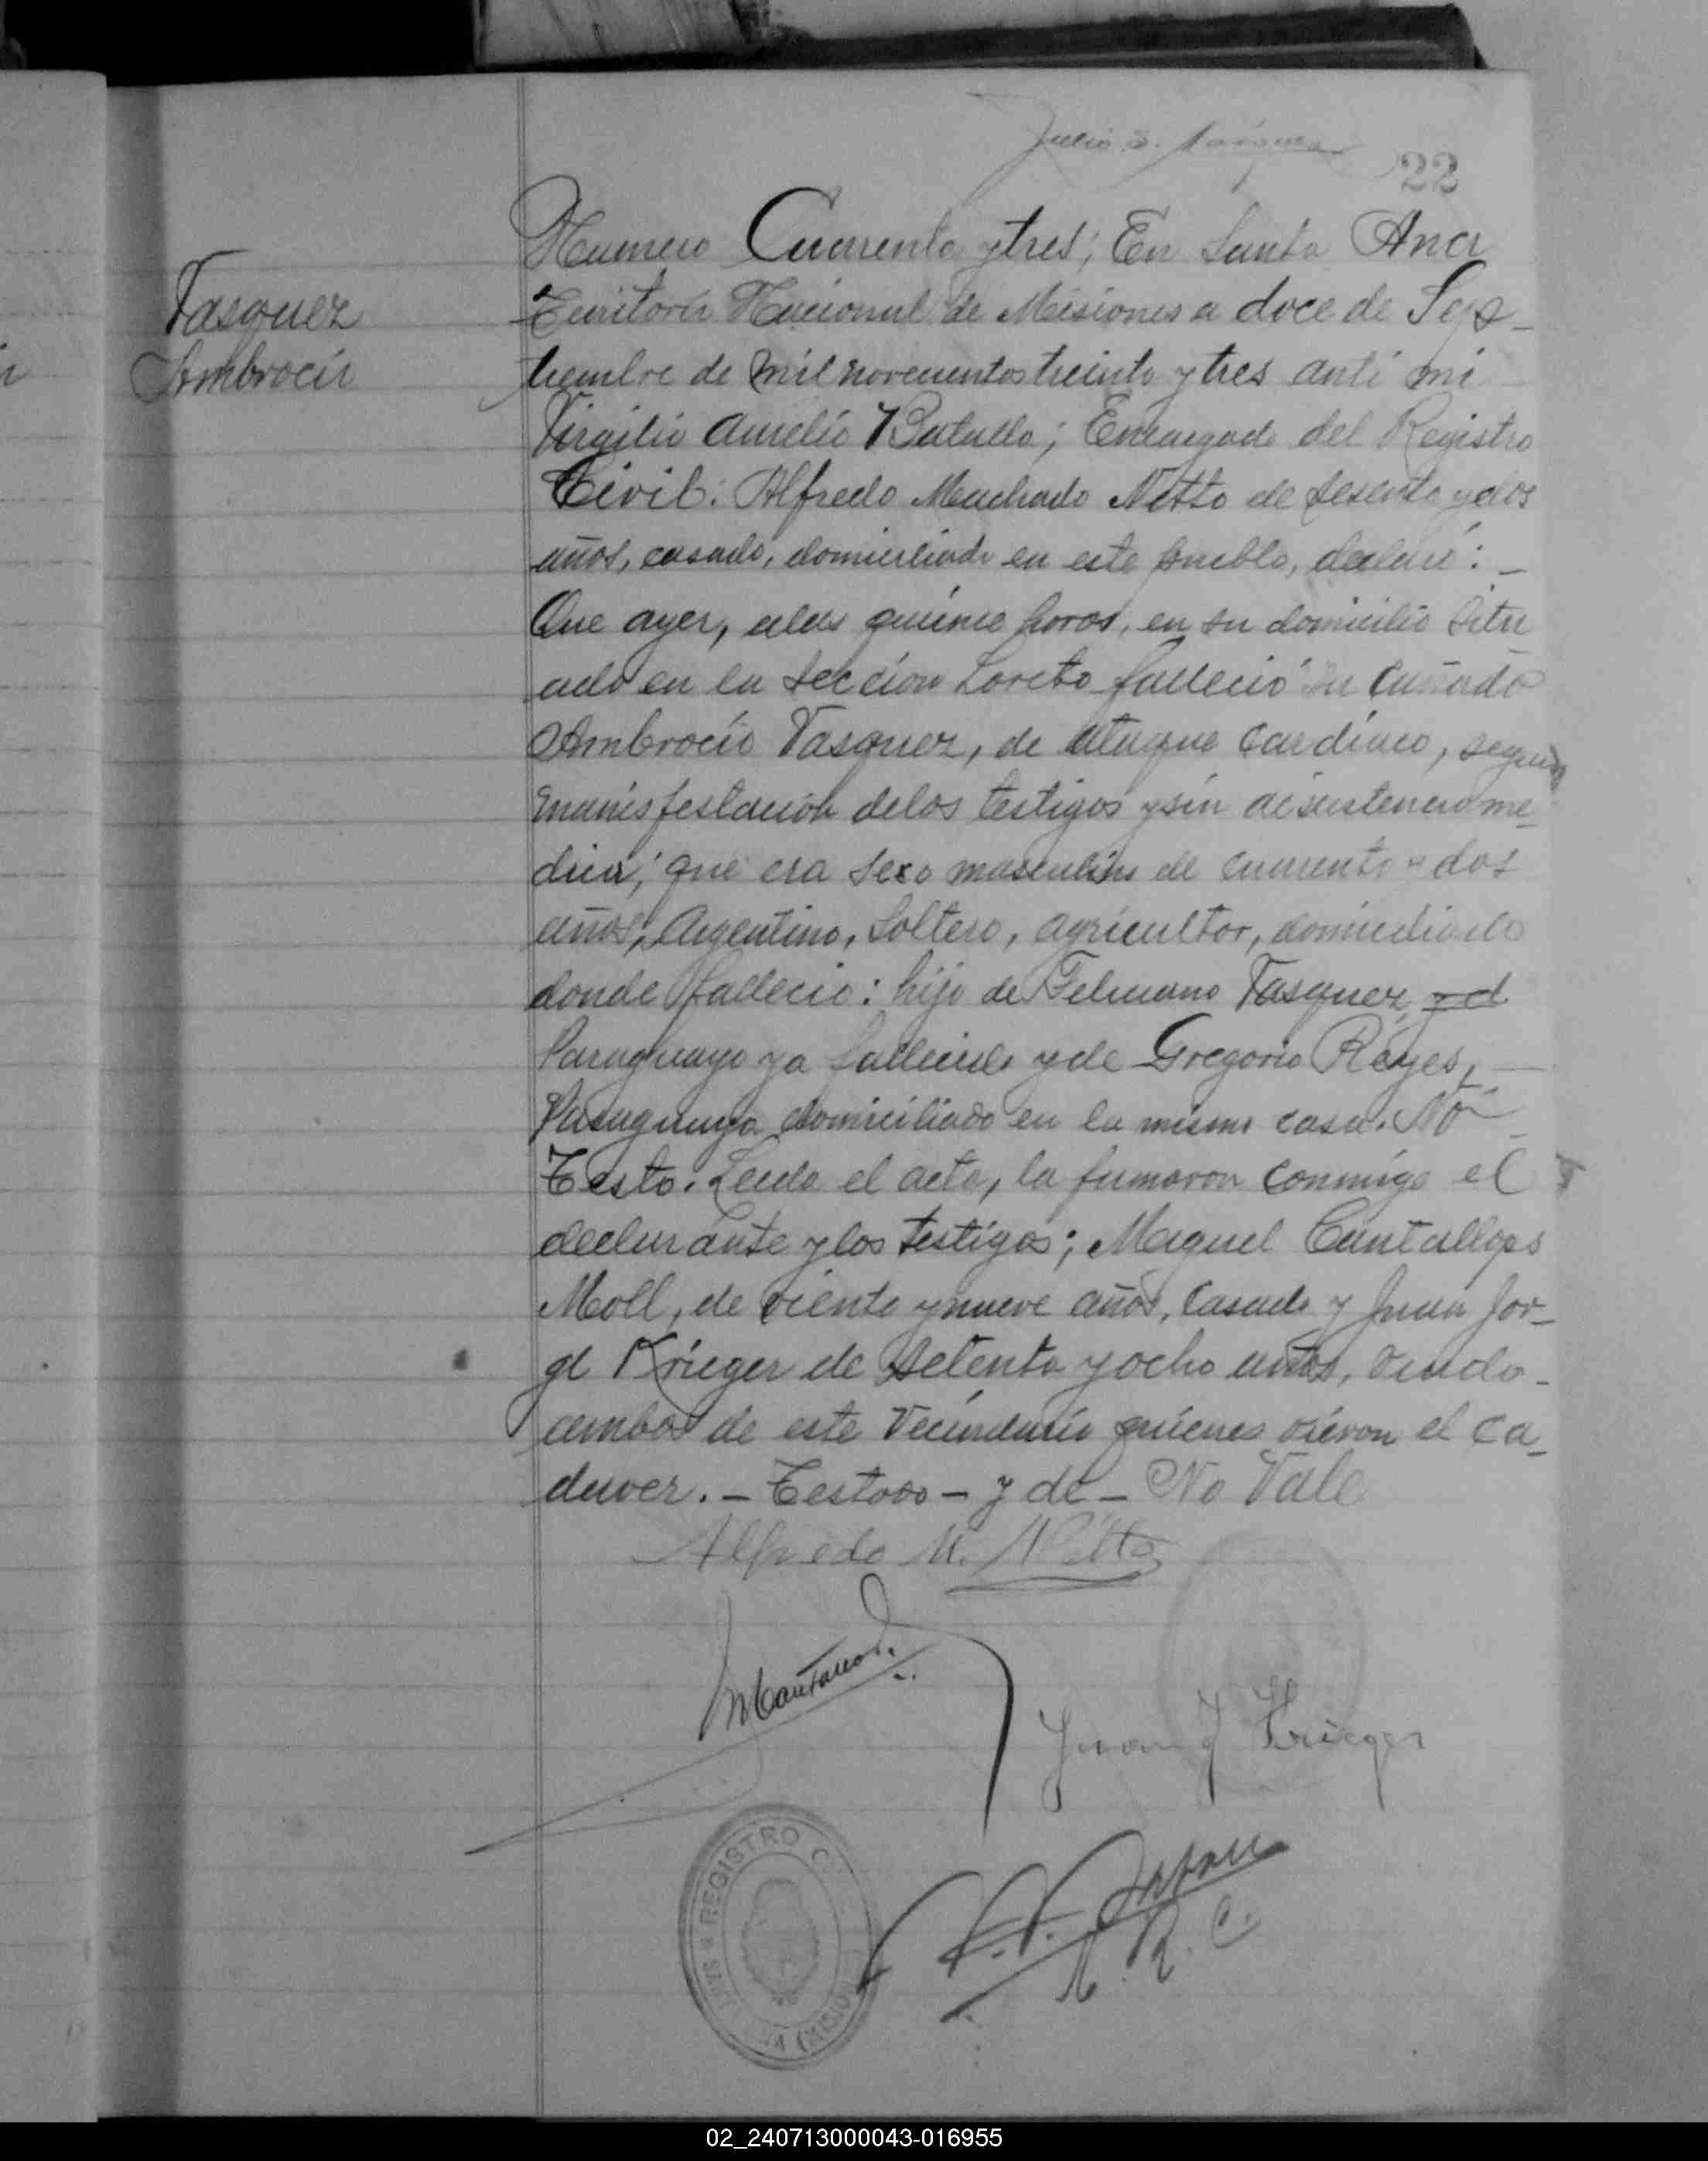 Julio S.
22
Vasquez
Ambrocio
Numero Cuarenta y tres; En Santa Ana
Territorio Nacional de Misiones a doce de Sep-
tiembre de mil novecientos treinta y tres anti mi
Virgilio Aurelio Batalla; Encargado del Registro
Civil: Alfredo Machado Netto de sesenta y dos
años, casado, domiciliado en este pueblo, declaró: -
Que ayer, a las quince horas, en su domicilio situ
ado en la sección Loreto falleció su cuñado
Ambrocio Vasquez, de ataque cardiaco, segun
manisfestación de los testigos y sin asistencia me-
dica; que era sexo masculino de cuarenta y dos
años, Argentino, Soltero, agricultor, domiciliado
donde fallecio: hijo de Feliciano Vasquez y d
Paraguayo ya fallecido y de Gregoria Reyes, -
Paraguaya domiciliado en la misma casa. No
Testo. Leida el acta, la firmaron conmigo el
declarante y los testigos; Miguel Cantallops
Moll, de veinte y nueve años, Casado y Juan Jor-
ge Krieger de setenta y ocho años, viudo -
ambos de este Vecindario quienes vieron el ca-
daver. - Testado - y de - No Vale
Alfredo M. Netto
Juan J Krieger
E. R. C.
REGISTRO C
ANA (MISIONES)
02_240713000043-016955